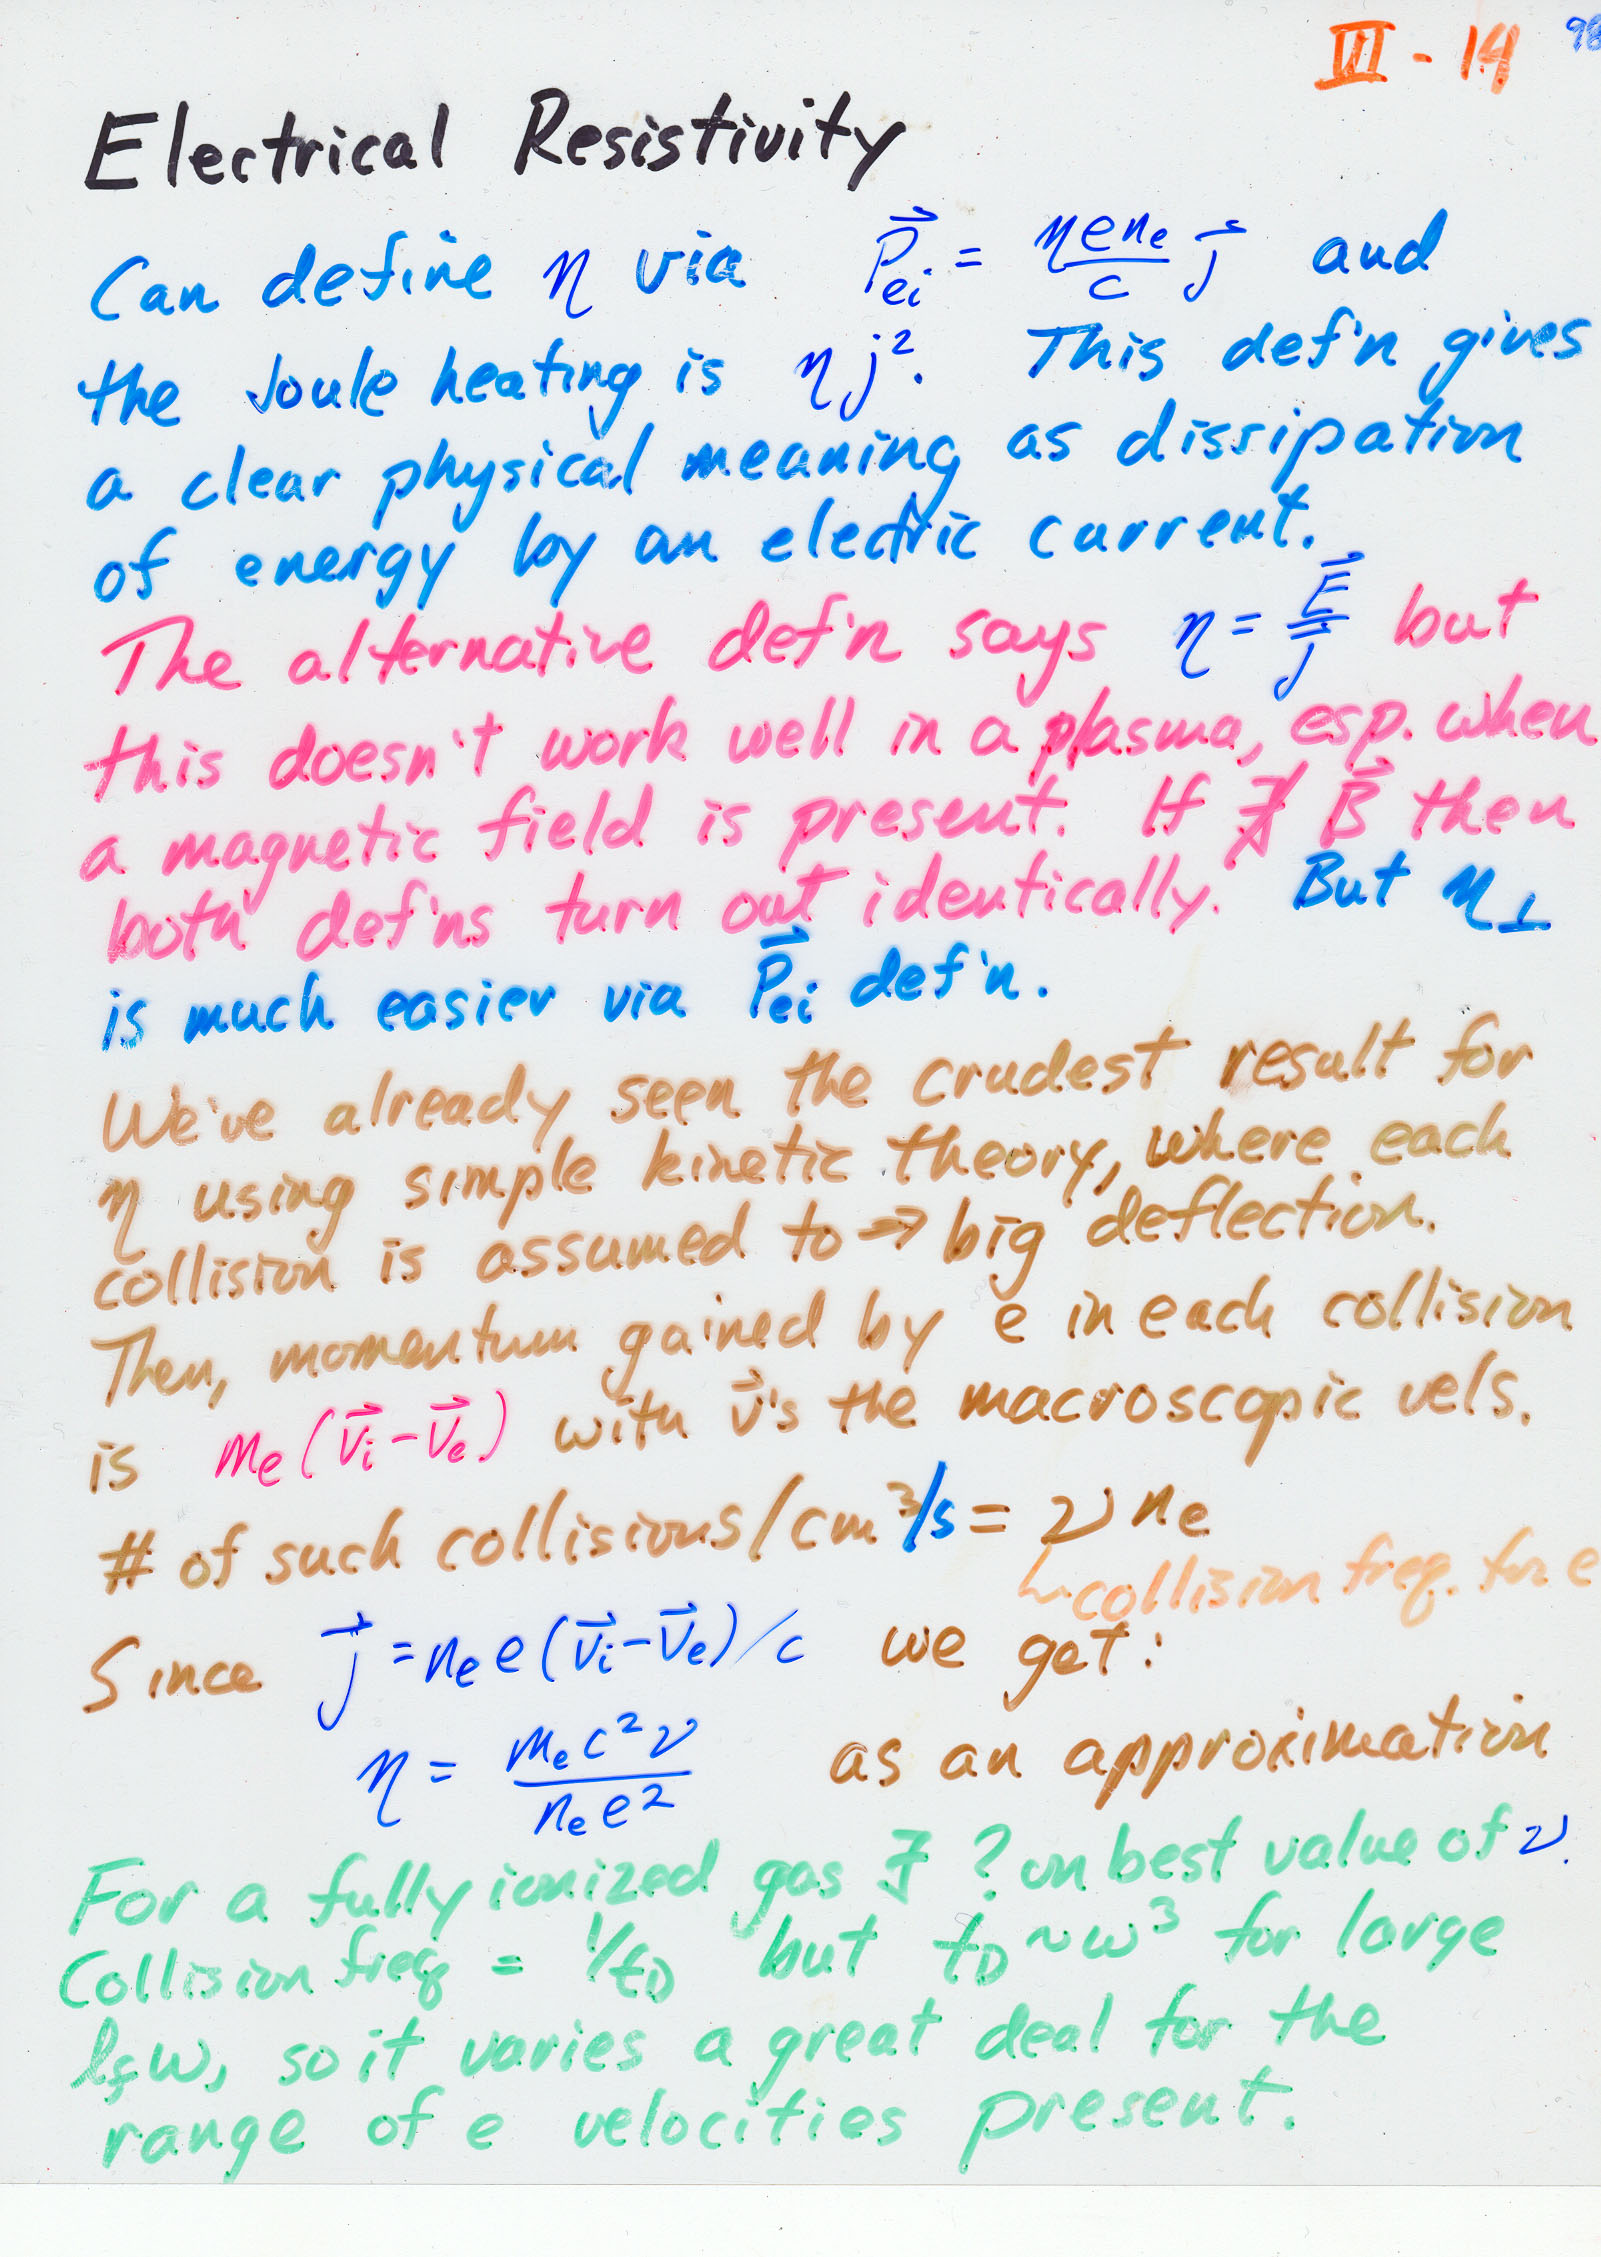 VII - 14 98
Electrical Resistivity
Can define η via P⃗ei = ηene/c j⃗ and
the Joule heating is ηj². This def'n gives
a clear physical meaning as dissipation
of energy by an electric current.
The alternative def'n says η = E⃗/j⃗ but
this doesn't work well in a plasma, esp. when
a magnetic field is present. If ∄ B⃗ then
both def'ns turn out identically. But η⊥
is much easier via P⃗ei def'n.
We've already seen the crudest result for
η using simple kinetic theory, where each
collision is assumed to → big deflection.
Then, momentum gained by e in each collision
is me(v⃗i - v⃗e) with v⃗'s the macroscopic vels.
# of such collisions/cm³/s = ν ne
collision freq. for e
Since j⃗ = ne e (v⃗i - v⃗e)/c we get:
η = me c² ν / ne e² as an approximation
For a fully ionized gas ∃ ? on best value of ν.
Collision freq = 1/tD but tD ~ w³ for large
lf w, so it varies a great deal for the
range of e velocities present.